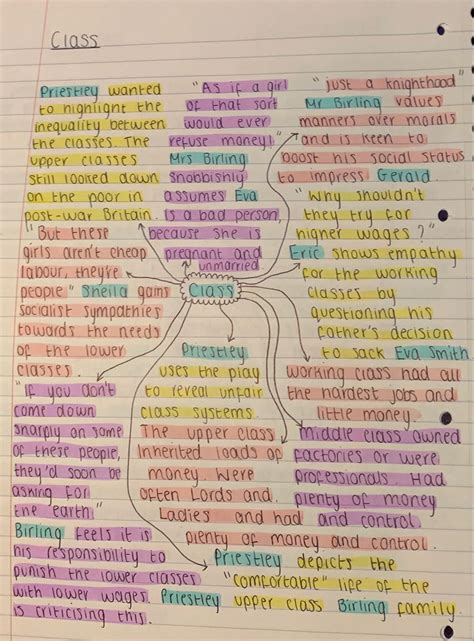 Class
Priestley wanted
to highlight the
inequality between
the classes. The
upper classes
still looked down
on the poor in
post-war Britain.
"As if a girl
of that sort
would ever
refuse money!"
Mrs Birling
snobbishly
assumes Eva
is a bad person,
because she is
pregnant and
unmarried
"just a knighthood"
Mr Birling values
manners over morals
and is keen to
boost his social status
to impress Gerald.
"Why shouldn't
they try for
higher wages?"
Eric shows empathy
for the working
classes by
questioning his
father's decision
to sack Eva Smith
"But these
girls aren't cheap
labour, they're
people" Sheila gains
socialist sympathies
towards the needs
of the lower
classes.
Class
Priestley
uses the play
to reveal unfair
class systems.
working class had all
the hardest jobs and
little money.
"If you don't
come down
sharply on some
of these people,
they'd soon be
asking for
the earth"
Birling feels it is
his responsibility to
punish the lower classes
with lower wages. Priestley
is criticising this.
The upper class
inherited loads of
money. Were
often Lords and
Ladies and had
plenty of money and control.
Middle class owned
factories or were
professionals. Had
plenty of money
and control.
Priestley depicts the
"comfortable" life of the
upper class Birling family.